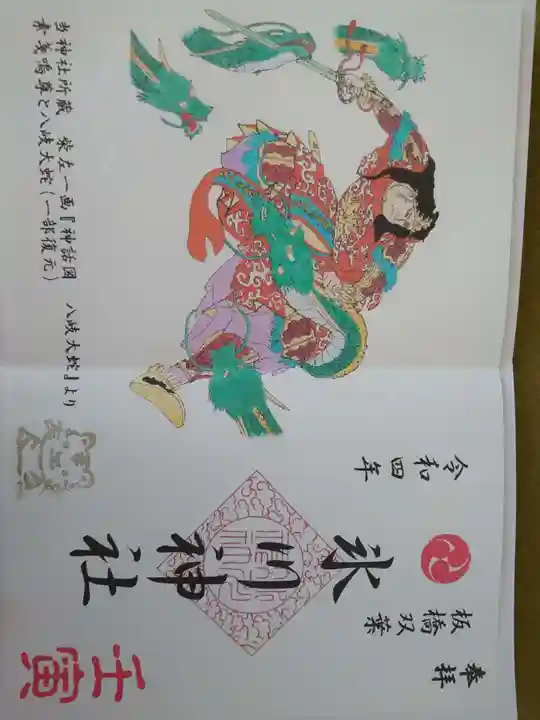 奉拝
板橋双葉
氷川神社
令和四年
壬寅
当神社所蔵 柴左一画『神話図 八岐大蛇』より
素戔嗚尊と八岐大蛇(一部復元)